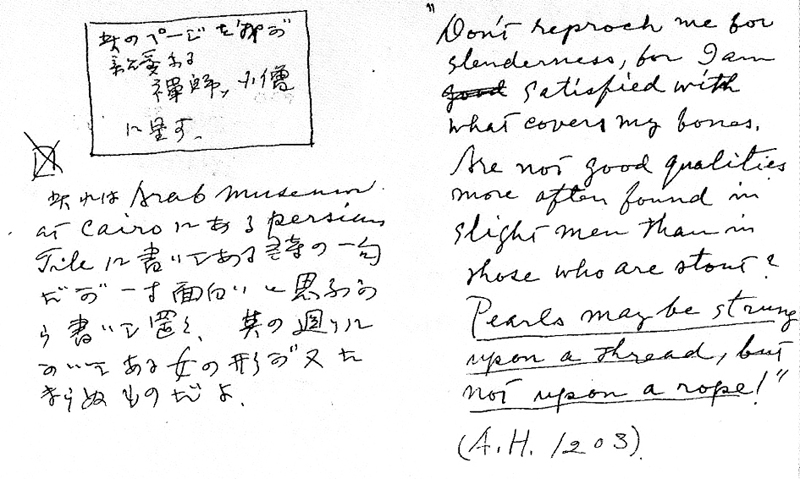 此のページを我が
親愛なる
禪師、小僧
に呈す。
此れは Arab museum
at Cairo にある persian
Tile に書いてある詩の一句
だが一寸面白いと思ふか
ら書いて置く、其の週りに
かいてある女の形が又た
まらぬものだよ.
"Don't reproch me for
slenderness, for I am
good satisfied with
what covers my bones.
Are not good qualities
more often found in
slight men than in
those who are stout?
Pearls may be strung
upon a thread, but
not upon a rope!"
(A.H. 1203)